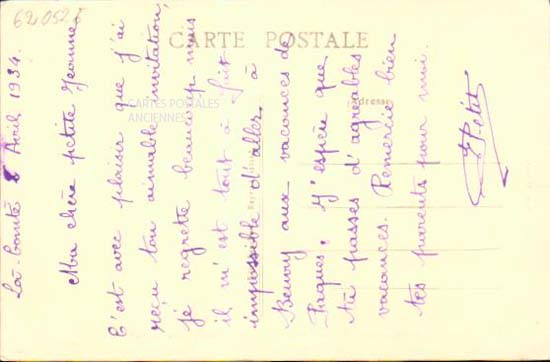 620528
CARTE POSTALE
Adresse
CARTES POSTALES
ANCIENNES
La Comté 8 Avril 1934.
Ma chère petite Jeanne
C'est avec plaisir que j'ai
reçu ton aimable invitation,
je regrette beaucoup mais
il m'est tout à fait
impossible d'aller à
Beuvry aux vacances de
Pâques. J'espère que
tu passes d'agréables
vacances. Remercie bien
tes parents pour moi.